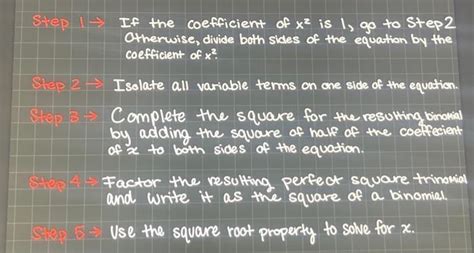 Step 1→ If the coefficient of x² is 1, go to Step 2
Otherwise, divide both sides of the equation by the
coefficient of x².
Step 2→ Isolate all variable terms on one side of the equation.
Step 3→ Complete the square for the resulting binomial
by adding the square of half of the coeffecient
of x to both sides of the equation.
Step 4→ Factor the resulting perfect square trinomial
and write it as the square of a binomial.
Step 5→ Use the square root property to solve for x.